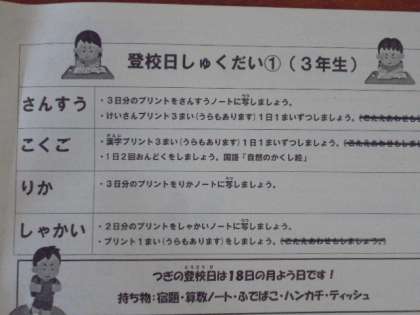 登校日しゅくだい①(３年生)
さんすう
・３日分のプリントをさんすうノートに写しましょう。
・けいさんプリント３まい(うらもあります)１日１まいずつしましょう。(こたえあわせもし
こくご
・漢字プリント３まい(うらもあります)１日１まいずつしましょう。(こたえあわせもしま
・１日２回おんどくをしましょう。国語「自然のかくし絵」
りか
・３日分のプリントをりかノートに写しましょう。
しゃかい
・２日分のプリントをしゃかいノートに写しましょう。
・プリント１まい(うらもあります)をしましょう。(こたえあわせもしましょう。)
つぎの登校日は18日の月よう日です！
持ち物：宿題・算数ノート・ふでばこ・ハンカチ・ティッシュ